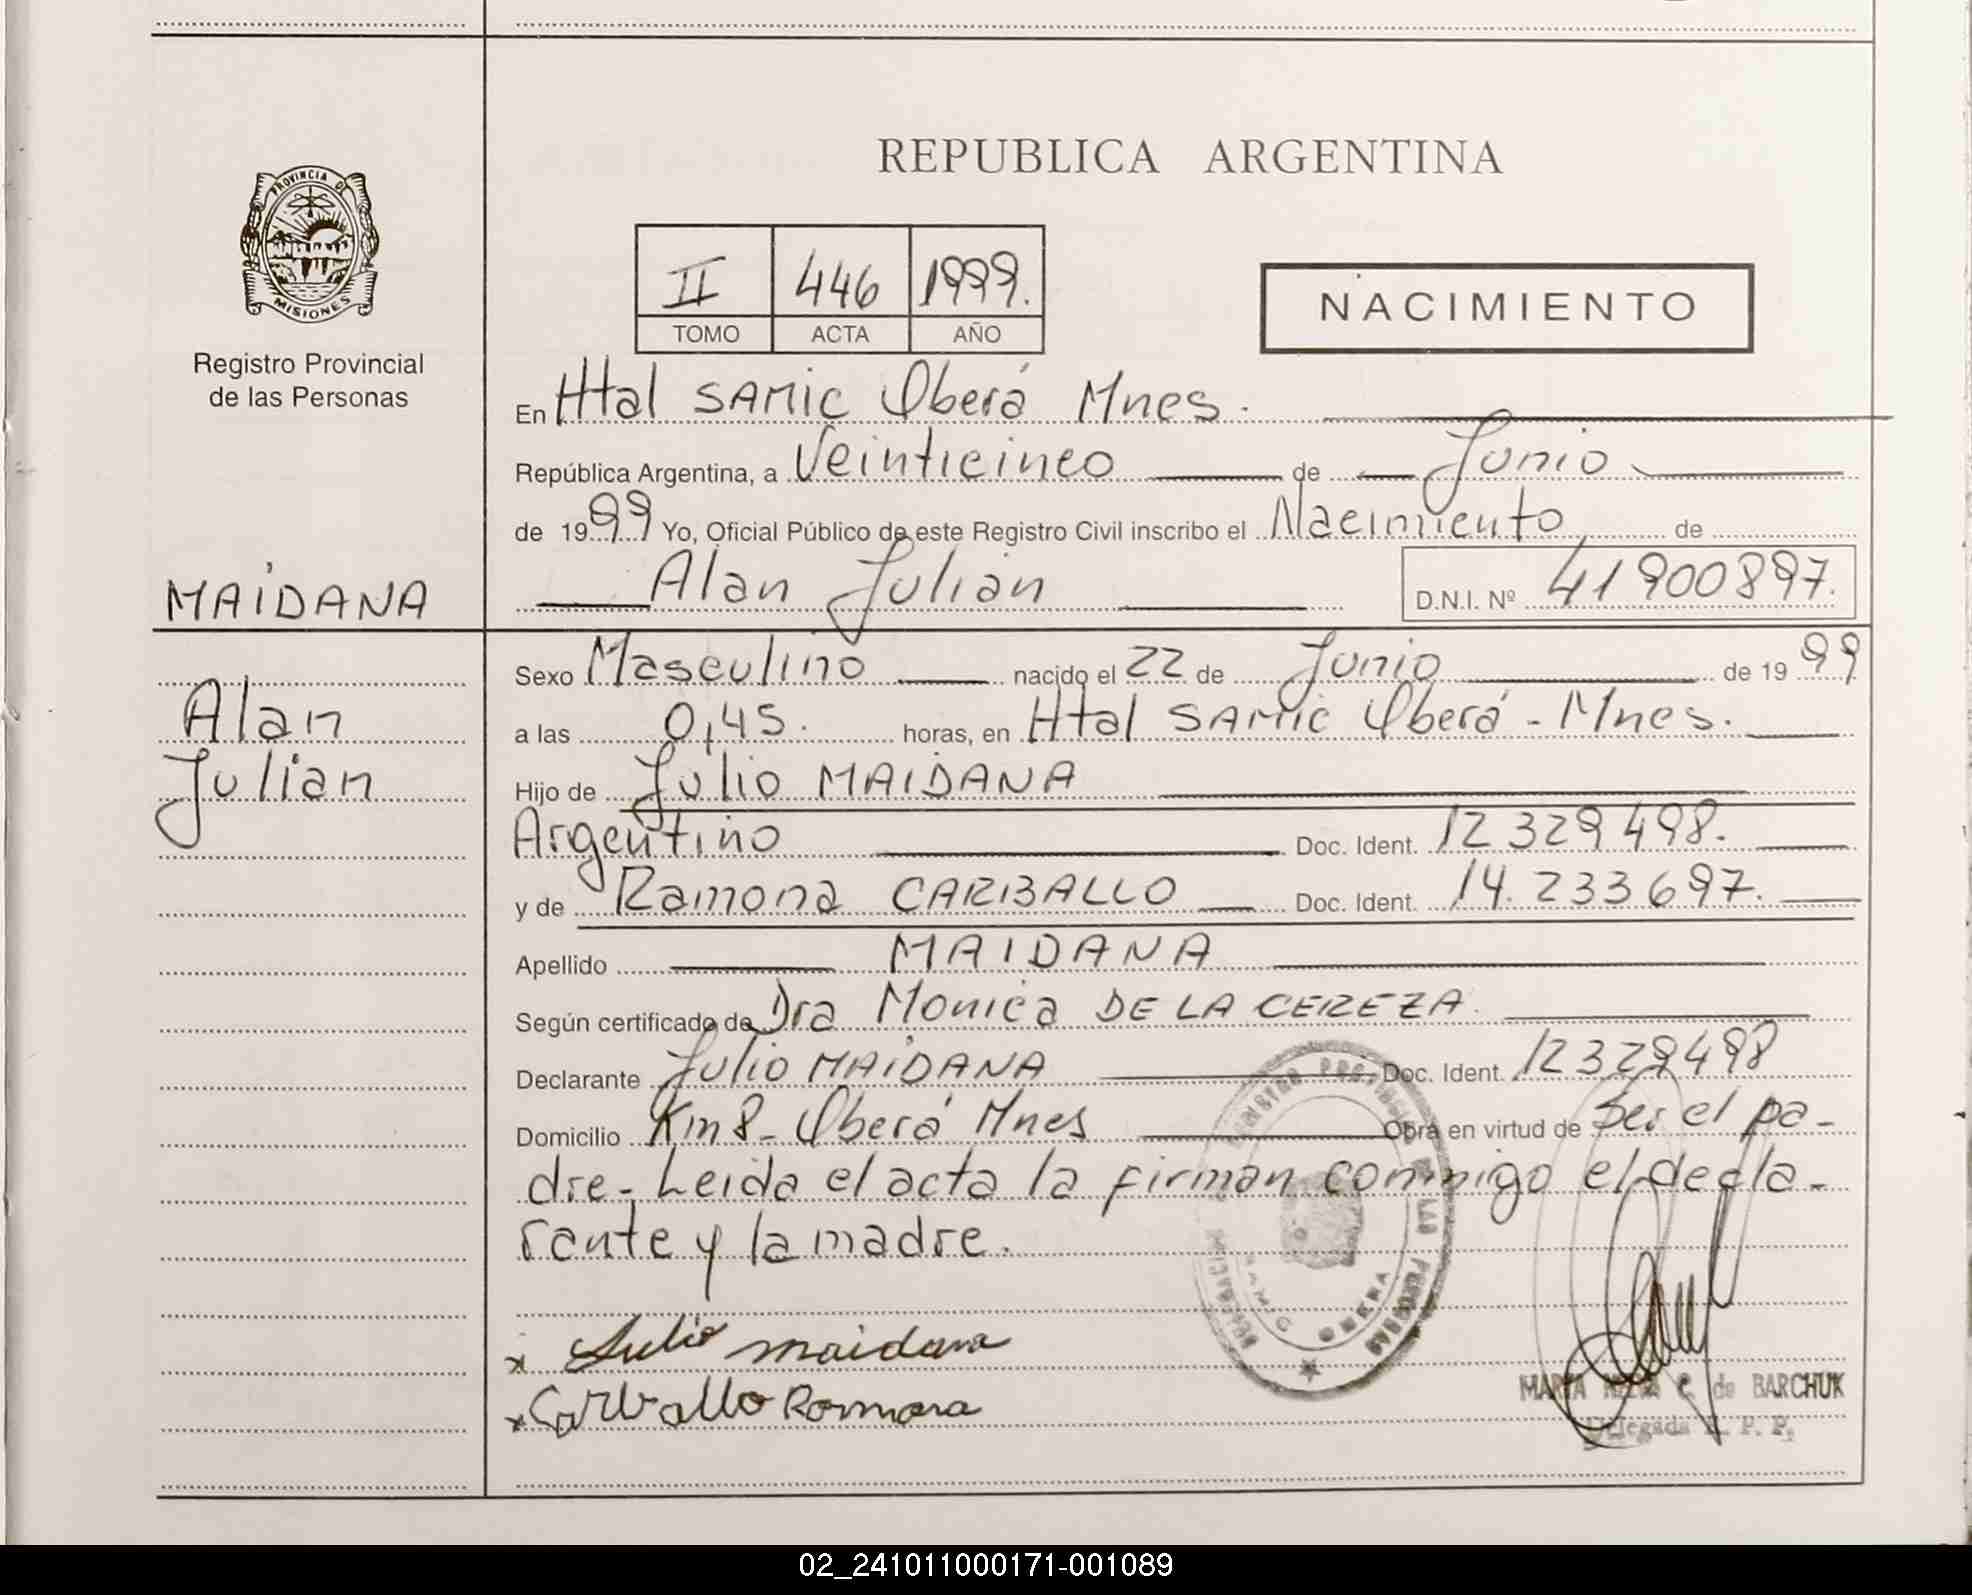 REPUBLICA ARGENTINA
PROVINCIA DE
MISIONES
Registro Provincial
de las Personas
II 446 1999.
TOMO ACTA AÑO
NACIMIENTO
En Htal SAMIC Oberá Mnes.
República Argentina, a Veinticinco de Junio
de 1999 Yo, Oficial Público de este Registro Civil inscribo el Nacimiento de
Alan Julian D.N.I. Nº 41900897.
MAIDANA
Alan
Julian
Sexo Masculino nacido el 22 de Junio de 1999
a las 0,45. horas, en Htal SAMIC Oberá - Mnes.
Hijo de Julio MAIDANA
Argentino Doc. Ident. 12329498.
y de Ramona CARBALLO Doc. Ident. 14.233697.
Apellido MAIDANA
Según certificado de Dra Monica DE LA CEREZA.
Declarante Julio MAIDANA Doc. Ident. 12329498
Domicilio Km 8 - Oberá Mnes Obra en virtud de ser el pa-
dre - Leida el acta la firman conmigo el decla-
rante y la madre.
x Julio maidana
x Carballo Romona
REGISTRO PROVINCIAL DE LAS PERSONAS
DELEGACION
SAMIC OBERA
MARTA C. de BARCHUK
Delegada R. P. P.
02_241011000171-001089